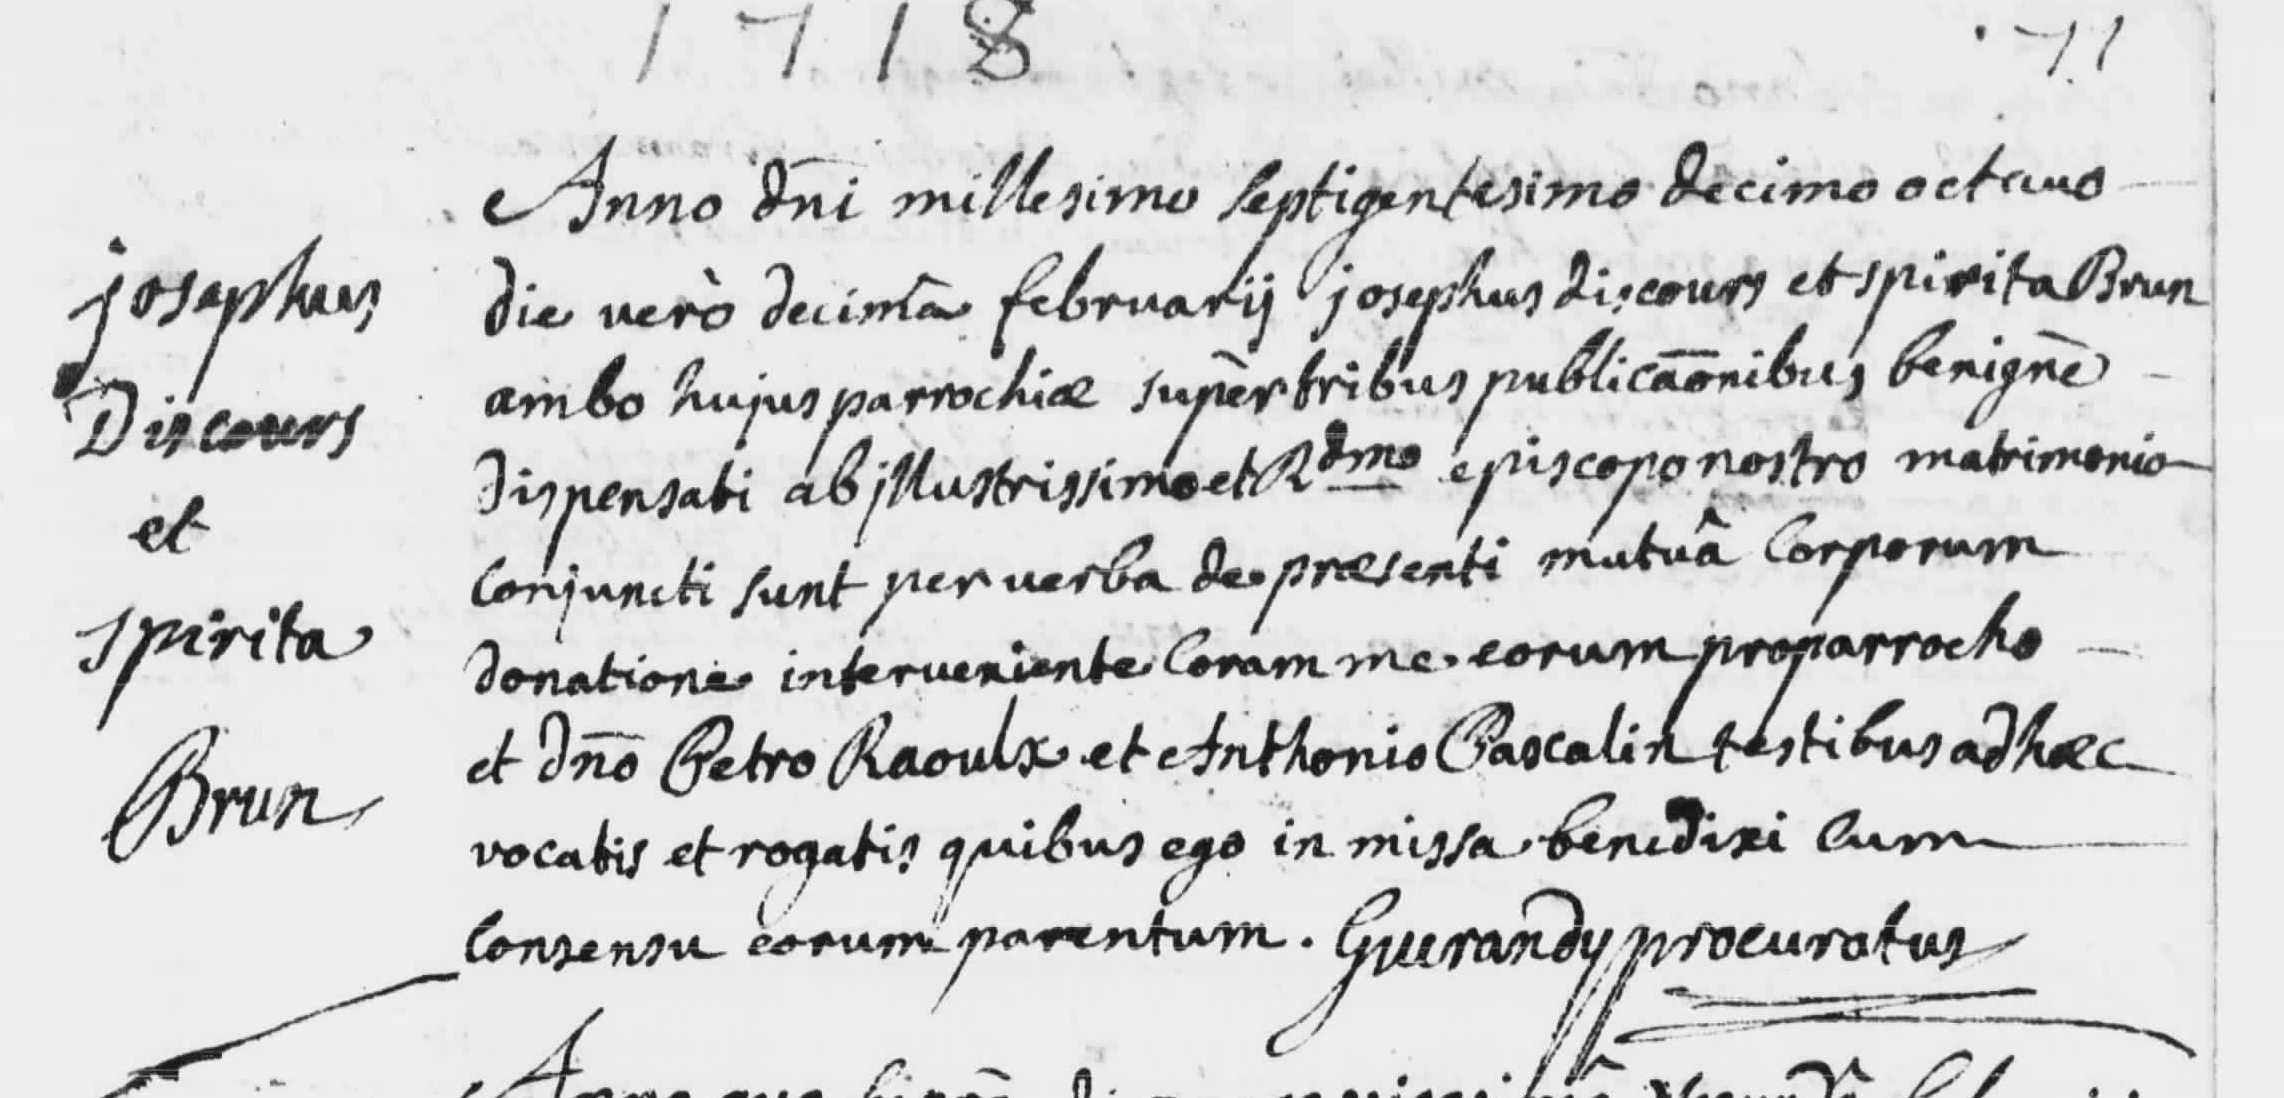 1718
71
josephus
Discours
et
spirita
Brun
Anno dni millesimo septigentesimo decimo octavo
die verò decimâ februarij josephus discours et spirita Brun
ambo hujus parrochiæ supèr tribus publicaonibus benignè
dispensati ab jllustrissimo et Rdmo episcopo nostro matrimonio
conjuncti sunt per verba de præsenti mutuâ corporum
donatione interveniente coram me eorum proparrocho
et dno Petro Raoulx et Anthonio Pascalin testibus ad hæc
vocatis et rogatis quibus ego in missa benedixi cum
consensu eorum parentum. Guerandy procuratus